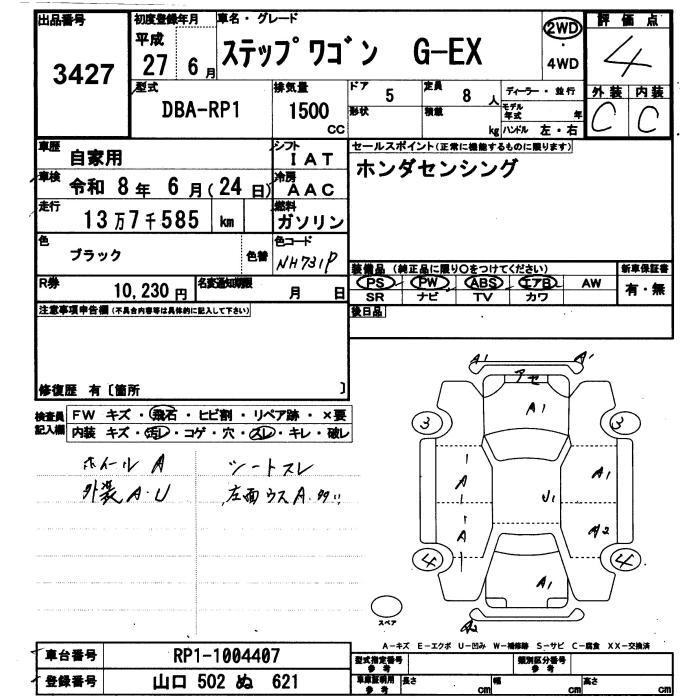 出品番号 初度登録年月 車名・グレード 評価点
3427 平成 27 6月 ステップワゴン G-EX 2WD・4WD 4
型式 排気量 ドア 定員 ディーラー・並行 外装 内装
DBA-RP1 1500 CC 5 8 人 C C
形状 積載 kg モデル年式 年
ハンドル 左・右
車歴 自家用 シフト IAT セールスポイント(正常に機能するものに限ります)
車検 令和 8年 6月(24日) 冷房 AAC ホンダセンシング
走行 13万7千585 km 燃料 ガソリン
色 ブラック 色替 色コード NH731P
装備品 (純正品に限り○をつけてください) 新車保証書
R券 10,230円 名変通知期限 月 日 PS PW ABS エアB AW 有・無
SR ナビ TV カワ
注意事項申告欄(不具合内容等は具体的に記入して下さい) 後日品
修復歴 有〔箇所 〕
検査員記入欄 FW キズ・飛石・ヒビ割・リペア跡・×要
内装 キズ・汚レ・コゲ・穴・スレ・キレ・破レ
ホイールA シートスレ
外装A・U 左面ウスA多い
A1 A1
アセ
A1
3 3
A A1
U1
A A2
4 4
A1
スペア A2
A-キズ E-エクボ U-凹み W-補修跡 S-サビ C-腐食 XX-交換済
車台番号 RP1-1004407 型式指定番号 参考 類別区分番号 参考
登録番号 山口 502 ぬ 621 車庫証明用 参考 長さ cm 幅 cm 高さ cm